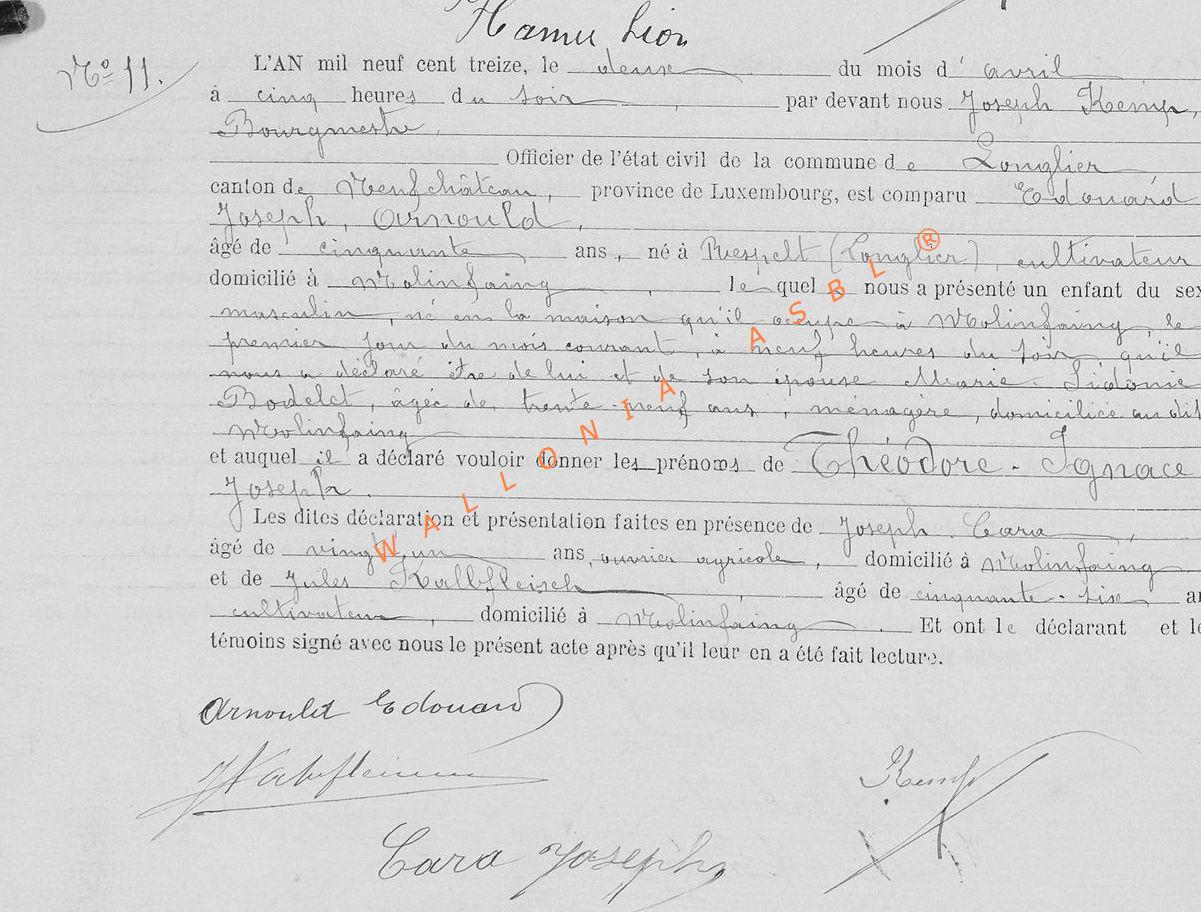 Hamer Léon
N° 11.
L'AN mil neuf cent treize, le deux du mois d'avril
à cinq heures du soir, par devant nous Joseph Kemp,
Bourgmestre,
Officier de l'état civil de la commune de Longlier
canton de Neufchâteau, province de Luxembourg, est comparu Edouard
Joseph, Arnould,
âgé de cinquante ans, né à Respelt (Longlier), cultivateur
domicilié à Molinfaing, lequel nous a présenté un enfant du sex
masculin, né en la maison qu'il occupe à Molinfaing, le
premier jour du mois courant, à neuf heures du soir, qu'il
nous a déclaré être de lui et de son épouse Marie-Sidonie
Bodelet, âgée de trente-neuf ans, ménagère, domiciliée au dit
Molinfaing
et auquel il a déclaré vouloir donner les prénoms de Théodore-Ignace
Joseph.
Les dites déclaration et présentation faites en présence de Joseph Cara,
âgé de vingt un ans, ouvrier agricole, domicilié à Molinfaing
et de Jules Kalbfleisch, âgé de cinquante-six an
cultivateur, domicilié à Molinfaing. Et ont le déclarant et le
témoins signé avec nous le présent acte après qu'il leur en a été fait lecture.
Arnould Edouard
Kemp
Cara Joseph
WALLONIA ASBL ®